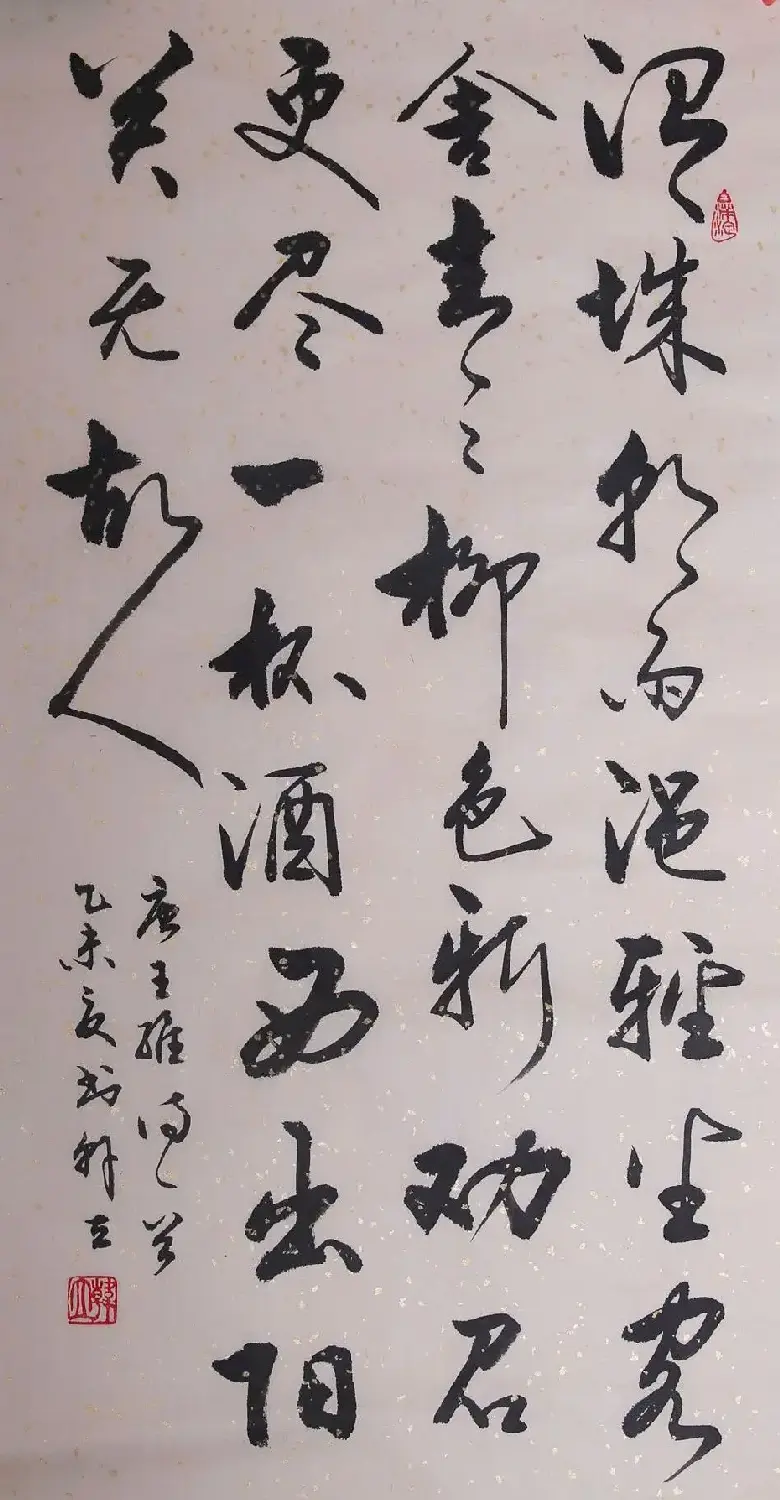 渭城朝雨浥輕尘客
舍青々柳色新劝君
更尽一杯酒西出阳
关无故人
唐王維诗一首
乙未夏书